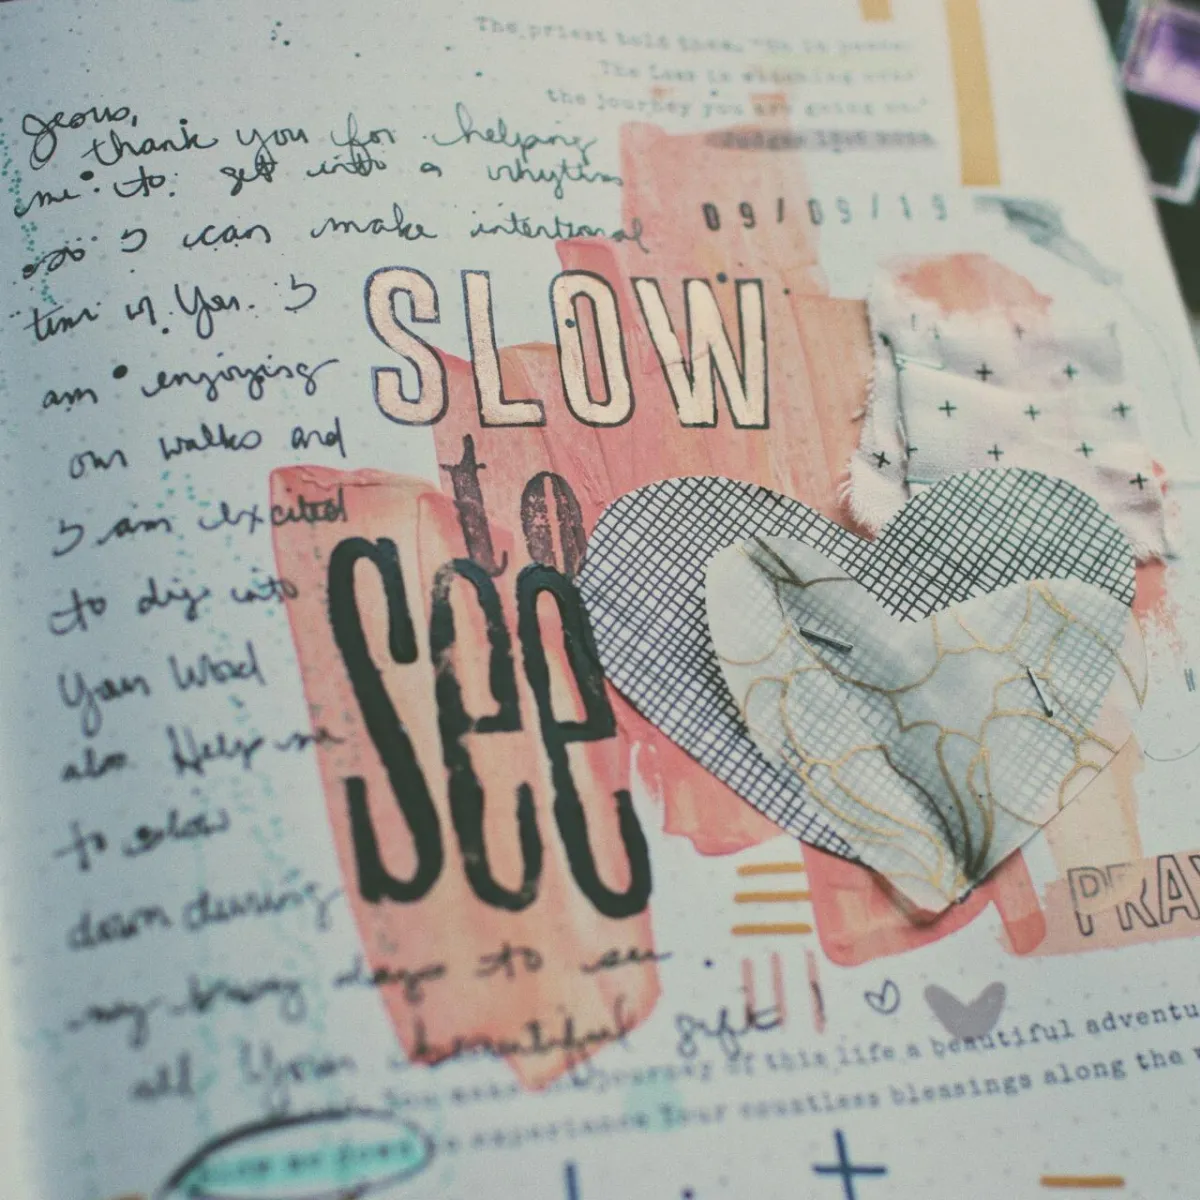 The priest told them, "Go in peace.
The Lord is watching over
the journey you are going on."
Judges 18:6
09/09/19
Jesus,
thank you for helping
me to get into a rhythm
so I can make intentional
time w/ You. I
am enjoying
our walks and
I am excited
to dig into
Your Word
also. Help me
to slow
down during
my busy days to see
all Your beautiful gifts!
SLOW
to
See
PRAY
journey of this life a beautiful adventu
experience Your countless blessings along the
slow me down